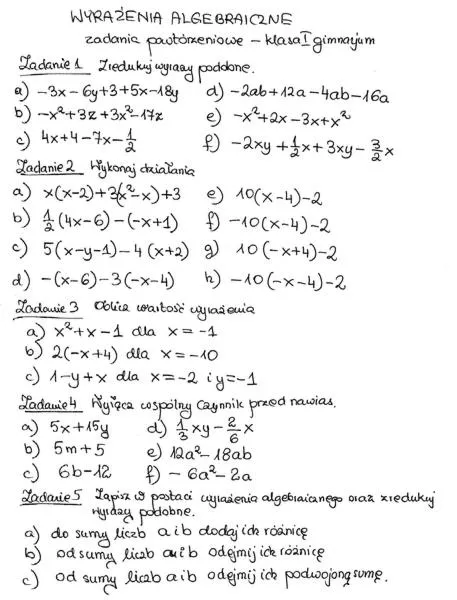 WYRAŻENIA ALGEBRAICZNE
zadania powtórzeniowe – klasa I gimnazjum
Zadanie 1 Zredukuj wyrazy podobne.
a) -3x - 6y + 3 + 5x - 18y d) -2ab + 12a - 4ab - 16a
b) -x² + 3z + 3x² - 17z e) -x² + 2x - 3x + x²
c) 4x + 4 - 7x - 1/2 f) -2xy + 1/2x + 3xy - 3/2x
Zadanie 2 Wykonaj działania
a) x(x-2) + 3(x²-x) + 3 e) 10(x-4) - 2
b) 1/2(4x-6) - (-x+1) f) -10(x-4) - 2
c) 5(x-y-1) - 4(x+2) g) 10(-x+4) - 2
d) -(x-6) - 3(-x-4) h) -10(-x-4) - 2
Zadanie 3 Oblicz wartość wyrażenia
a) x² + x - 1 dla x = -1
b) 2(-x+4) dla x = -10
c) 1 - y + x dla x = -2 i y = -1
Zadanie 4 Wyłącz wspólny czynnik przed nawias.
a) 5x + 15y d) 1/3xy - 2/6x
b) 5m + 5 e) 12a² - 18ab
c) 6b - 12 f) -6a² - 2a
Zadanie 5 Zapisz w postaci wyrażenia algebraicznego oraz zredukuj
wyrazy podobne.
a) do sumy liczb a i b dodaj ich różnicę
b) od sumy liczb a i b odejmij ich różnicę
c) od sumy liczb a i b odejmij ich podwojoną sumę.